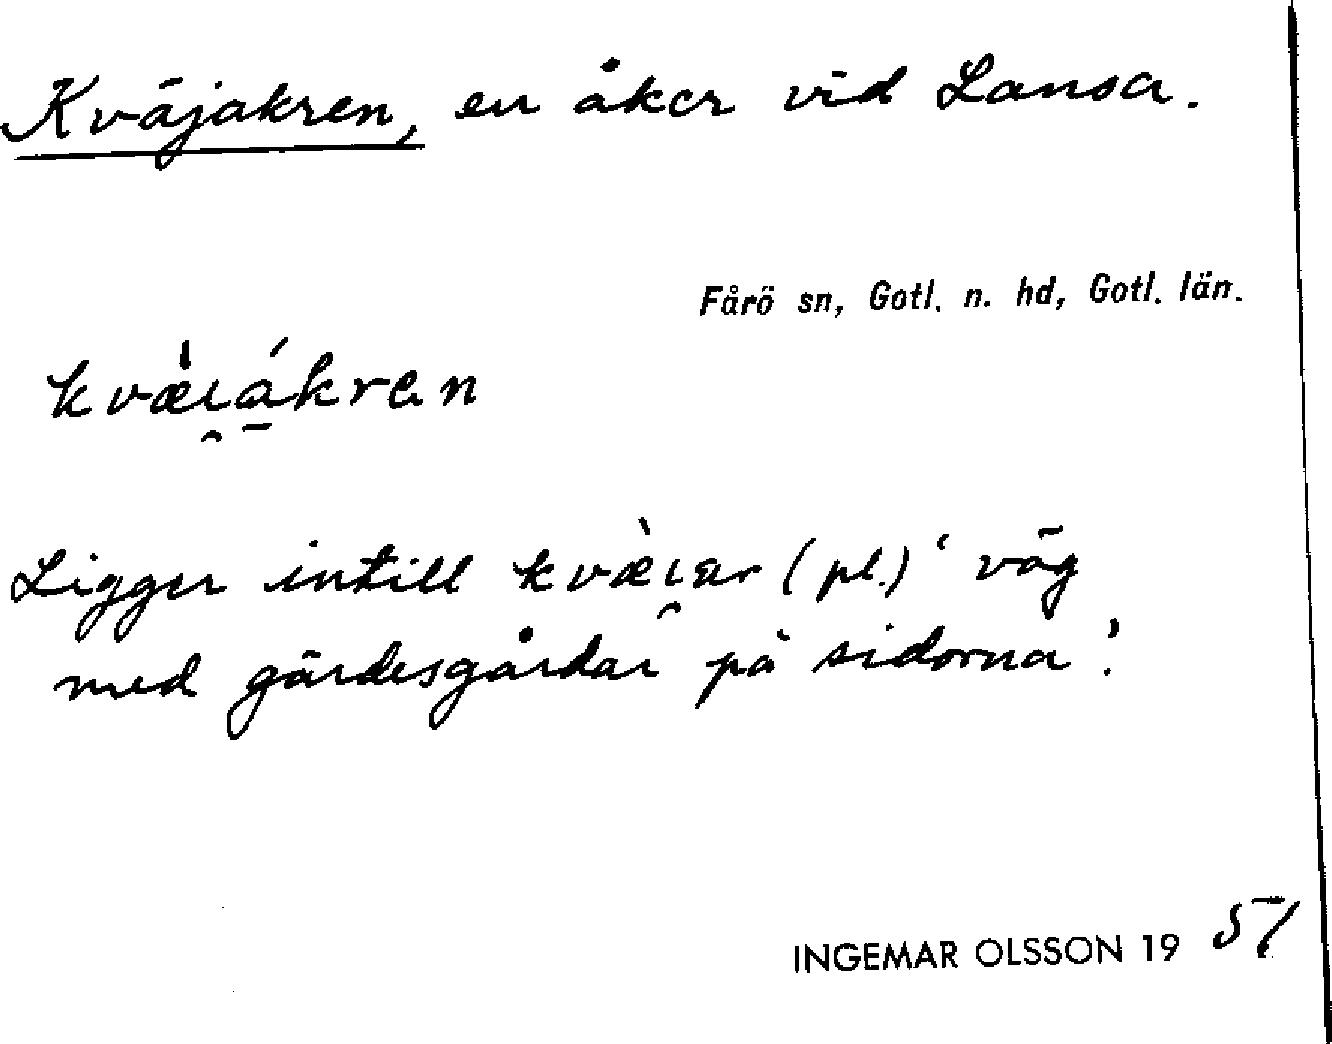 Kväjakren, en åker vid Lansa.
Fårö sn, Gotl. n. hd, Gotl. län.
kvæ̀ɩ̯á̱kren
Ligger intill kvæ̀ɩ̯ar (pl.) ‘väg
med gärdesgårdar på sidorna’.
INGEMAR OLSSON 19 51